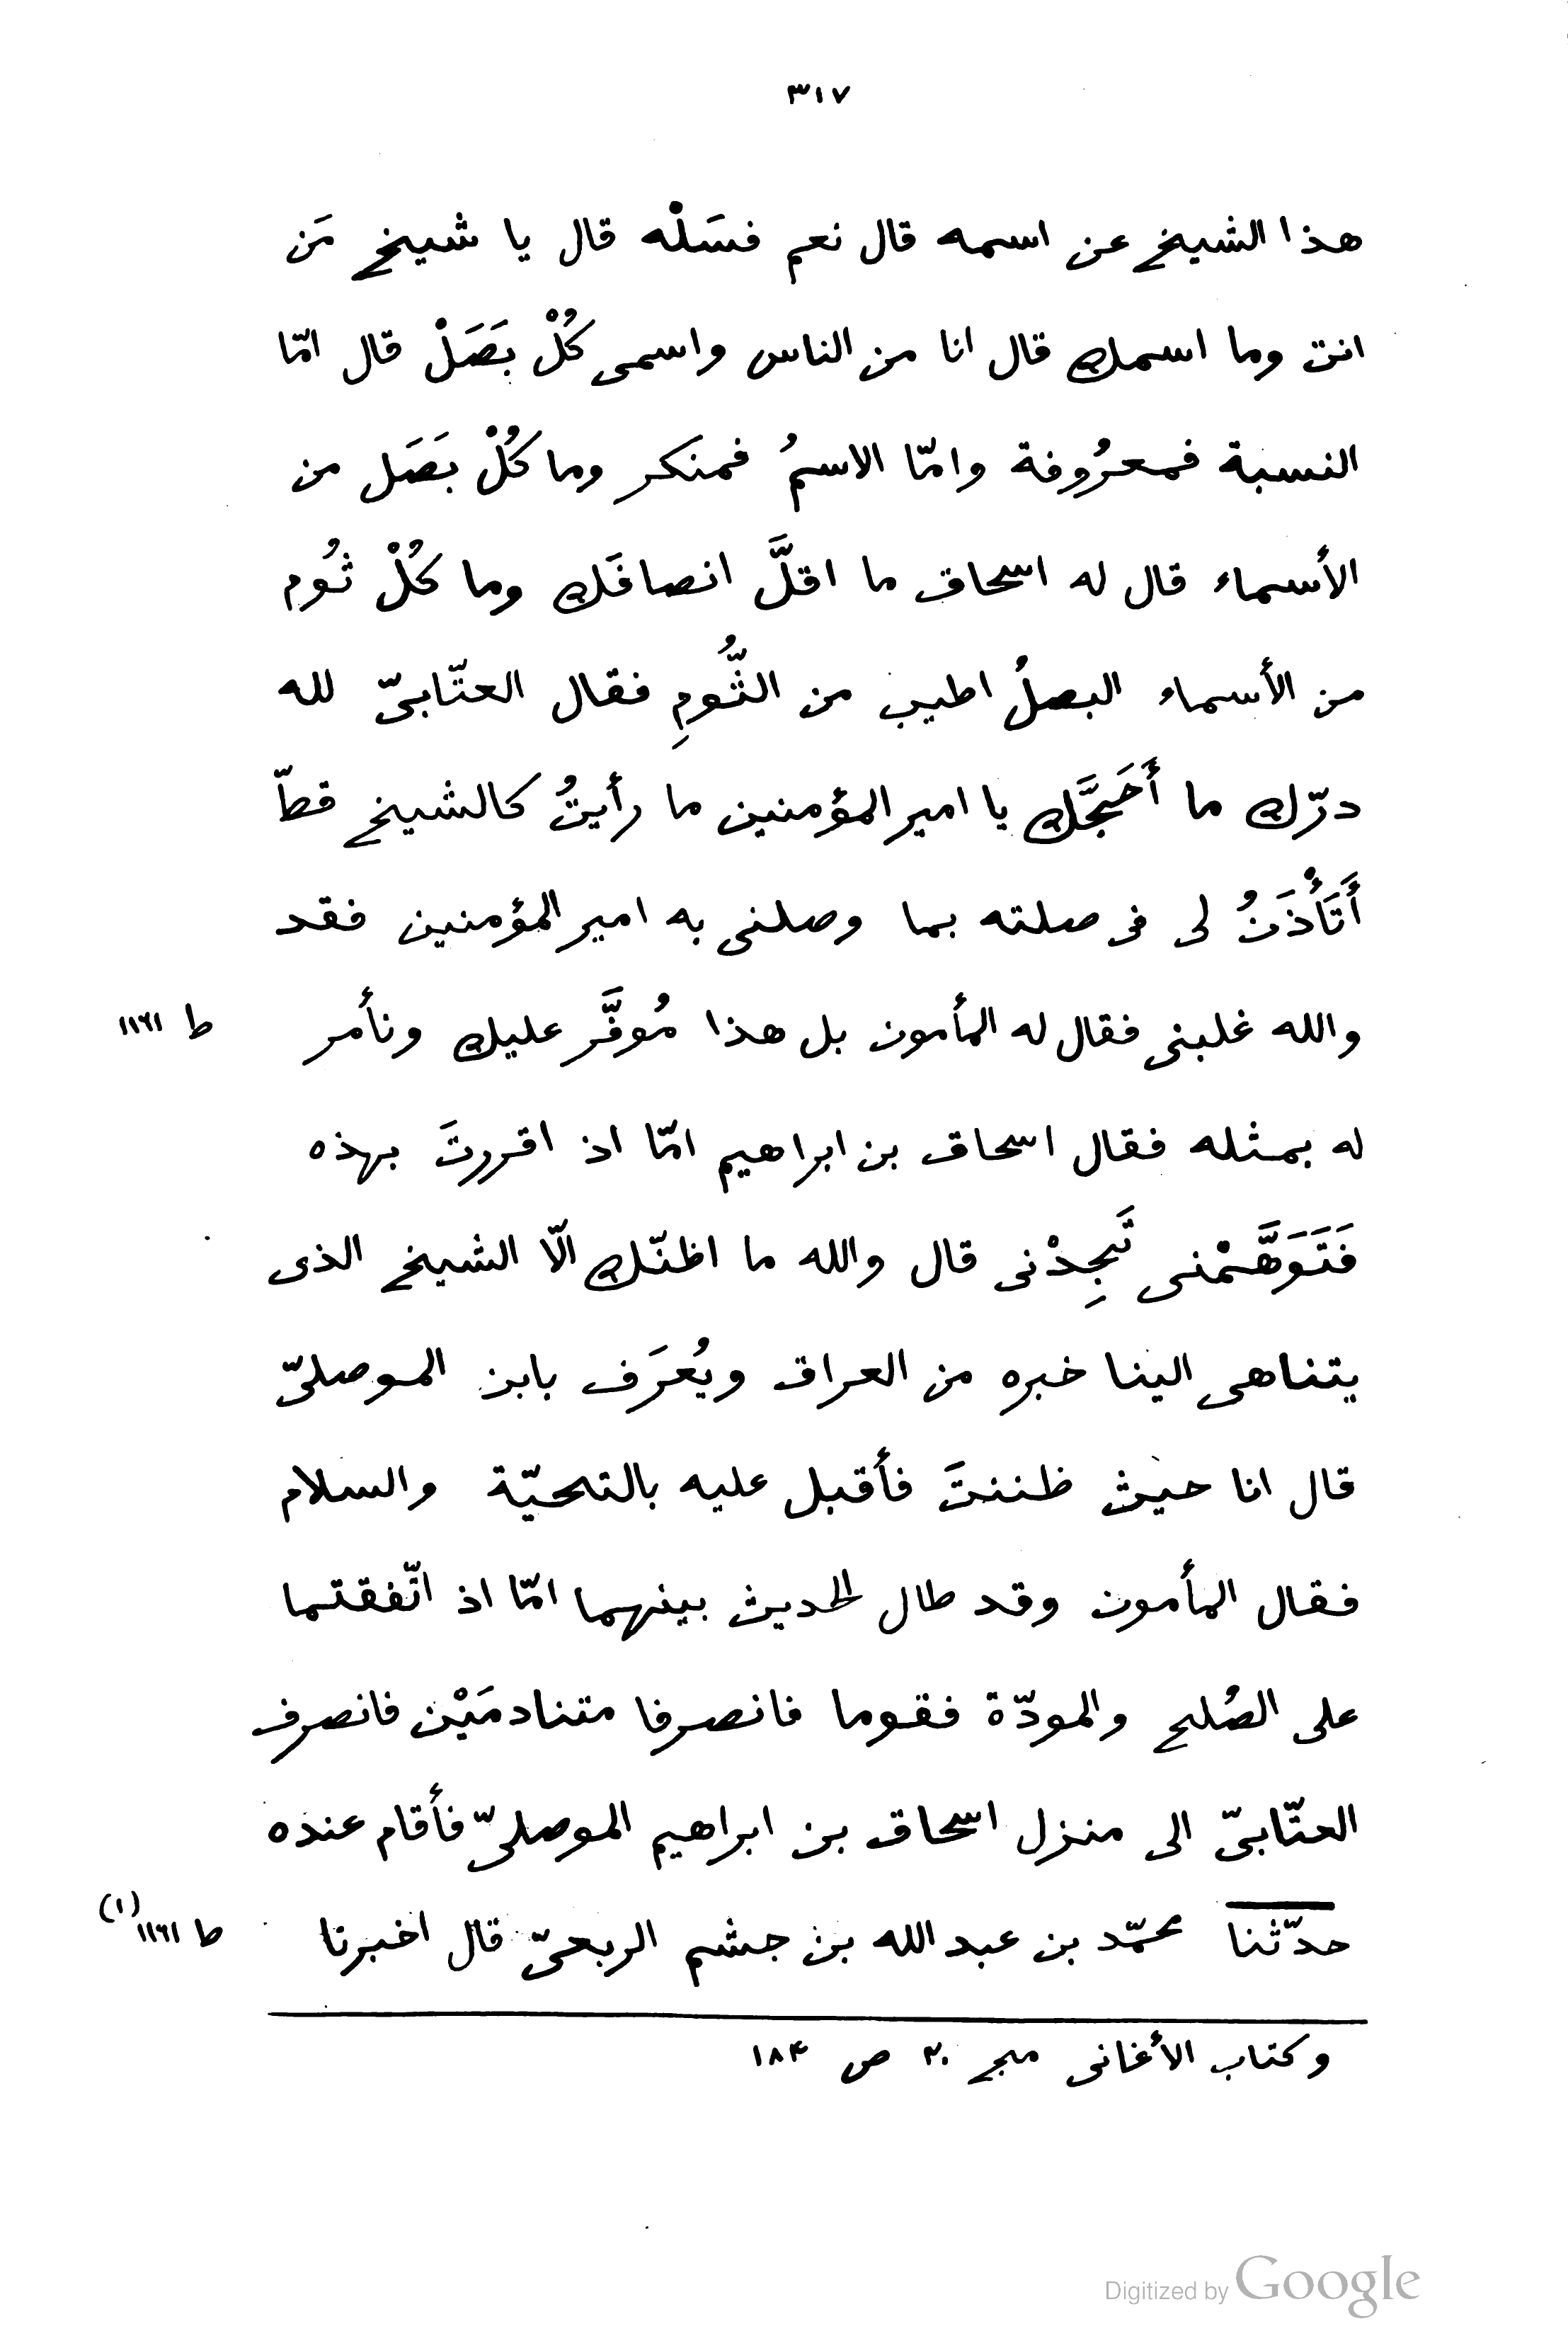 ٣١٧
هذا الشيخ عن اسمه قال نعم فسَلْه قال يا شيخ مَن
انت وما اسمك قال انا من الناس واسمى كُلْ بَصَلْ قال امّا
النسبة فمعرُوفة وامّا الاسمُ فمنكر وما كُلْ بَصَل من
الأسماء قال له اسحاق ما اقلَّ انصافَك وما كُلْ ثُوم
من الأسماء البصلُ اطيب من الثُّومِ فقال العتّابىّ لله
درّك ما أَحَجَّك يا امير المؤمنين ما رأيتُ كالشيخ قطّ
أَتَأْذَنُ لى فى صلته بما وصلنى به امير المؤمنين فقد
والله غلبنى فقال له المأمون بل هذا مُوفَّر عليك ونأمر ط ١١٦١
له بمثله فقال اسحاق بن ابراهيم امّا اذ اقررتَ بهذه
فَتَوَهَّمْنى تَجِدْنى قال والله ما اظنّك الّا الشيخ الذى
يتناهى الينا خبره من العراق ويُعرَف بابن الموصلىّ
قال انا حيث ظننتَ فأقبل عليه بالتحيّة والسلام
فقال المأمون وقد طال الحديث بينهما امّا اذ اتّفقتما
على الصُلح والمودّة فقوما فانصرفا متنادمَيْن فانصرف
العتّابىّ الى منزل اسحاق بن ابراهيم الموصلىّ فأقام عنده
حدّثنا محمّد بن عبد الله بن جشم الربعىّ قال اخبرنا ط ١١٦١ (١)
وكتاب الأغانى مج ٢٠ ص ١٨٤
Digitized by Google